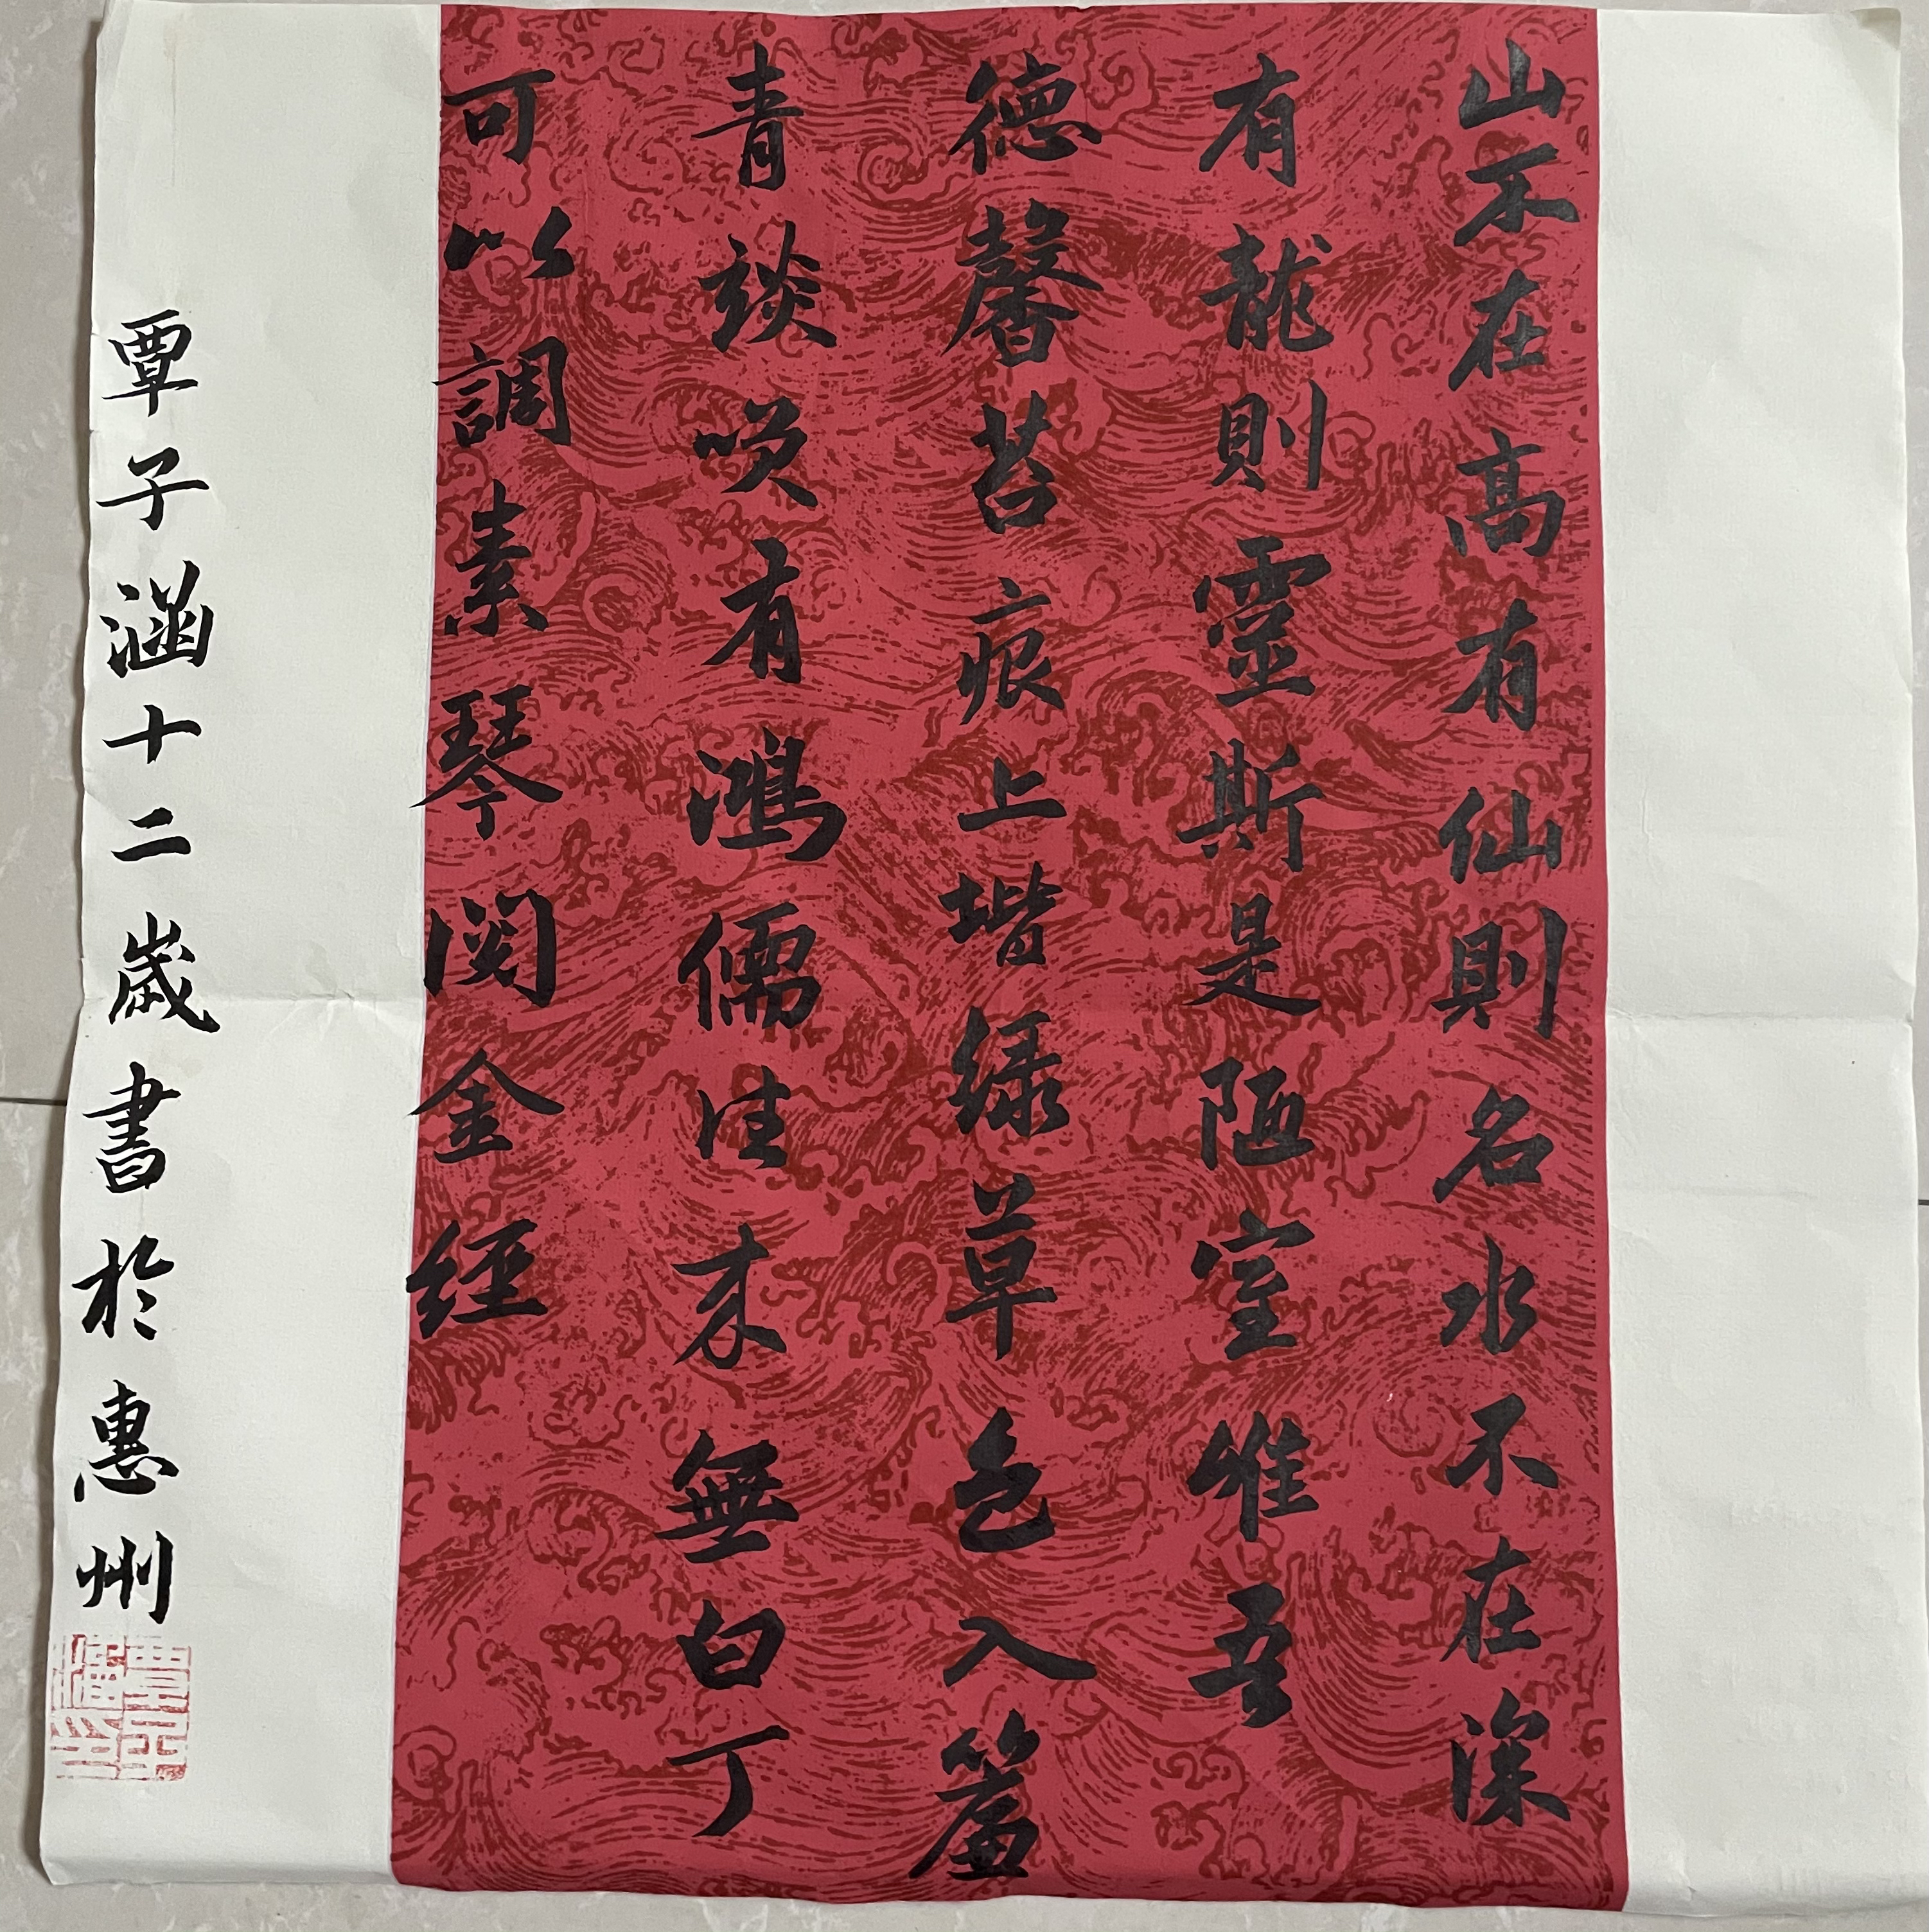 山不在高有仙則名水不在深
有龍則靈斯是陋室惟吾
德馨苔痕上堦绿草色入簾
青談咲有鴻儒往来無白丁
可以調素琴閱金経
覃子涵十二歲書於惠州